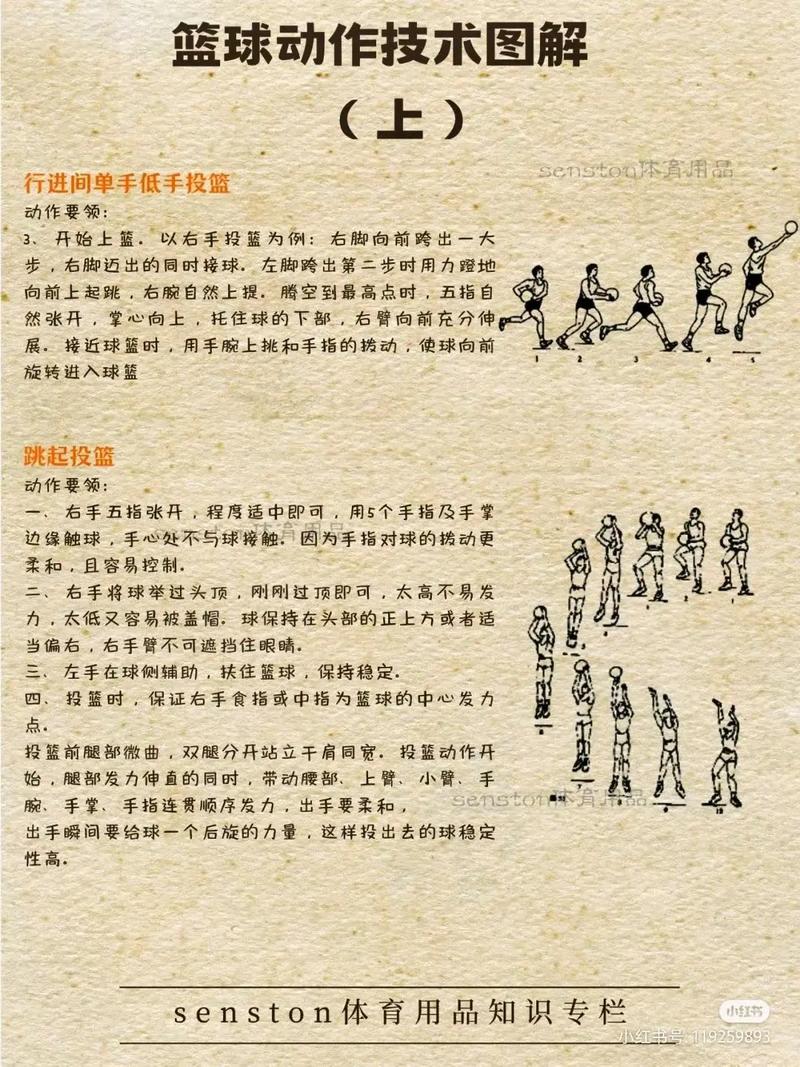 篮球动作技术图解
（上）
senston体育用品
行进间单手低手投篮
动作要领：
3、开始上篮。以右手投篮为例：右脚向前跨出一大
步，右脚迈出的同时接球。左脚跨出第二步时用力蹬地
向前上起跳，右腕自然上提。腾空到最高点时，五指自
然张开，掌心向上，托住球的下部，右臂向前充分伸
展。接近球篮时，用手腕上挑和手指的拨动，使球向前
旋转进入球篮
1 2 3 4 5
跳起投篮
动作要领：
一、右手五指张开，程度适中即可，用5个手指及手掌
边缘触球，手心处不与球接触。因为手指对球的拨动更
柔和，且容易控制。
二、右手将球举过头顶，刚刚过顶即可，太高不易发
力，太低又容易被盖帽。球保持在头部的正上方或者适
当偏右，右手臂不可遮挡住眼睛。
三、左手在球侧辅助，扶住篮球，保持稳定。
四、投篮时，保证右手食指或中指为篮球的中心发力
点。
投篮前腿部微曲，双腿分开站立干肩同宽。投篮动作开
始，腿部发力伸直的同时，带动腰部、上臂、小臂、手
腕、手掌、手指连贯顺序发力，出手要柔和，
出手瞬间要给球一个后旋的力量，这样投出去的球稳定
性高。
senston体育用品
senston体育用品知识专栏
小红书
小红书号：119259893